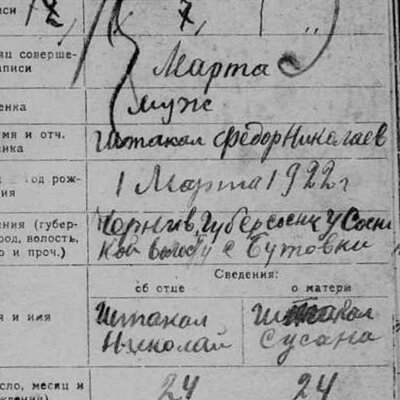 иси 12, 7, "
яц соверше-
аписи Марта
енка муж
мя и отч.
енка Штакал Федор Николаев
од рож-
ия 1 Марта 1922 г
ения (губер-
род, волость, Черниг. Губер Сосниц У Сосни
о и проч.) кой волосту с Бутовки
Сведения:
об отце о матери
я и имя Штакал Штакал
Николай Сусана
сло, месяц и 24 24